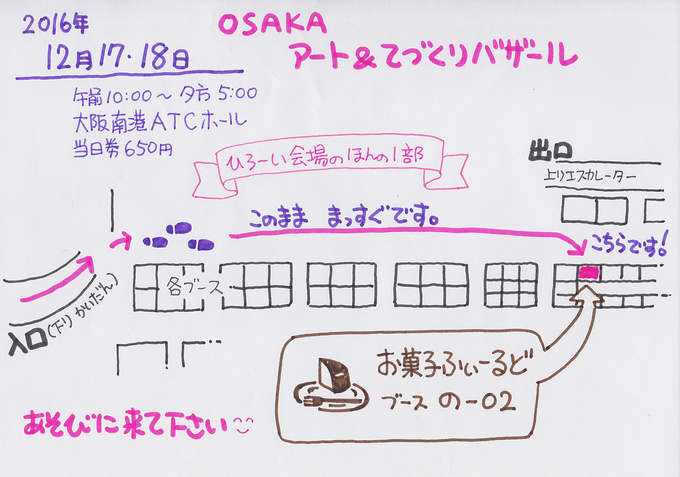 2016年
12月17・18日
OSAKA
アート&てづくりバザール
午前10:00〜夕方5:00
大阪南港ATCホール
当日券650円
ひろ〜い会場のほんの1部
出口
上りエスカレーター
このまま まっすぐです。
こちらです!
各ブース
入口(下りかいだん)
お菓子ふぃーるど
ブース の-02
あそびに来て下さい